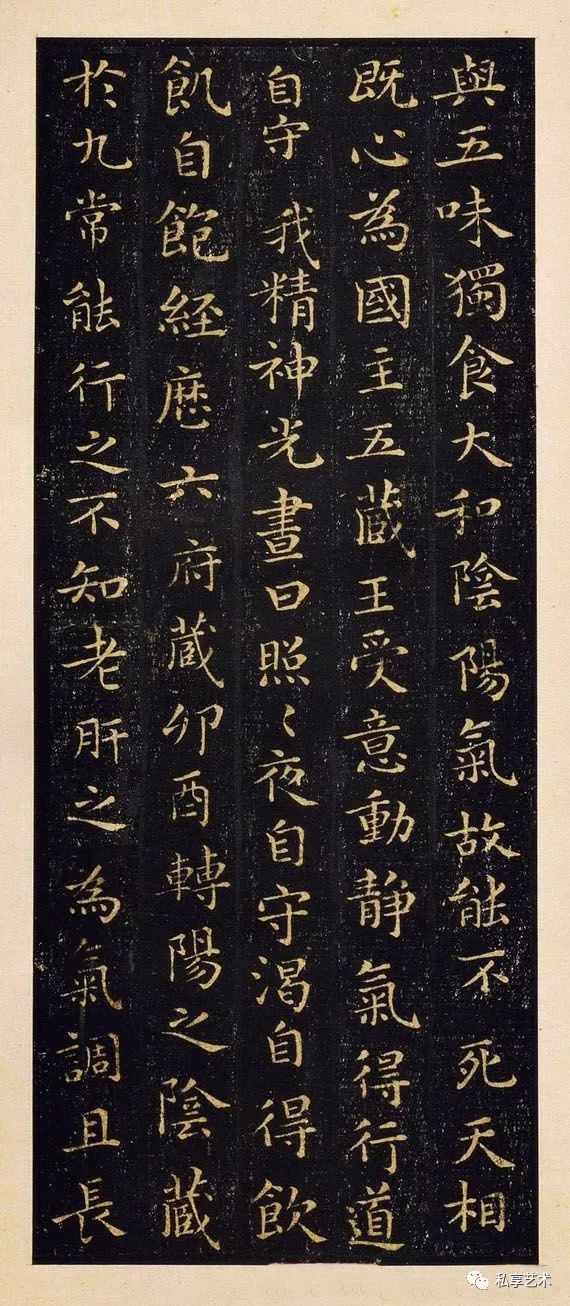 與五味獨食大和陰陽氣故能不死天相
既心為國主五蔵王受意動静氣得行道
自守我精神光晝日照〻夜自守渴自得飲
飢自飽經歷六府蔵卯酉轉陽之陰蔵
於九常能行之不知老肝之為氣調且長
私享艺术